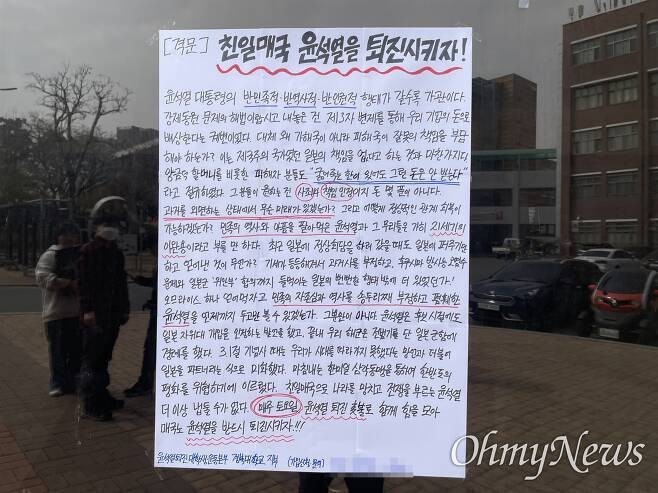 [격문] 친일매국 윤석열을 퇴진시키자!
윤석열 대통령의 반민족적·반역사적·반인권적 행태가 갈수록 가관이다.
강제동원 문제의 해법이랍시고 내놓은 건 제3자 변제를 통해 우리 기업의 돈으로
배상한다는 궤변이었다. 대체 왜 가해국이 아니라 피해국이 잘못의 책임을 부담
해야 하는가? 이는 제국주의 국가였던 일본의 책임을 없다고 하는 것과 마찬가지다.
양금덕 할머니를 비롯한 피해자 분들도 "굶어죽는 한이 있어도 그런 돈은 안 받는다"
라고 절규하였다. 그분들이 원하는 건 사죄와 책임 인정이지 돈 몇 푼이 아니다.
과거를 외면하는 상태에서 무슨 미래가 있겠는가? 그리고 어떻게 정상적인 관계 회복이
가능하겠는가? 민족의 역사와 아픔을 팔아먹은 윤석열과 그 무리들을 가히 21세기의
이완용이라고 부를 만 하다. 최근 일본에 정상회담을 하러 갔을 때도 일본에 퍼주기만
하고 얻어낸 것이 무언가? 기세가 등등해져서 과거사를 부정하고, 후쿠시마 방사능 오염수
문제와 일본군 '위안부' 합의까지 들먹이는 일본의 뻔뻔한 행태 밖에 더 있었던가!
오므라이스 하나 얻어먹자고 민족의 자존심과 역사를 송두리째 부정하고 팔아먹은
윤석열을 언제까지 두고만 볼 수 있겠는가! 그뿐만이 아니다 윤석열은 후보 시절에도
일본 자위대 개입을 인정하는 발언을 했고, 끝내 우리 해군은 전범기를 단 일본군함에
경례를 했다. 3.1절 기념사 때는 우리가 시대를 따라가지 못했다는 망언과 더불어
일본을 파트너라는 식으로 미화했다. 마침내는 한미일 삼각동맹을 통하여 한반도의
평화를 위협하기에 이르렀다. 친일매국으로 나라를 망치고 전쟁을 부르는 윤석열
더 이상 냅둘 수가 없다. 매주 토요일 윤석열 퇴진 촛불로 함께 힘을 모아
매국노 윤석열을 반드시 퇴진시키자!!!
윤석열퇴진 대학생운동본부 경북대학교 지부 (가입신청 문의)
OhmyNews